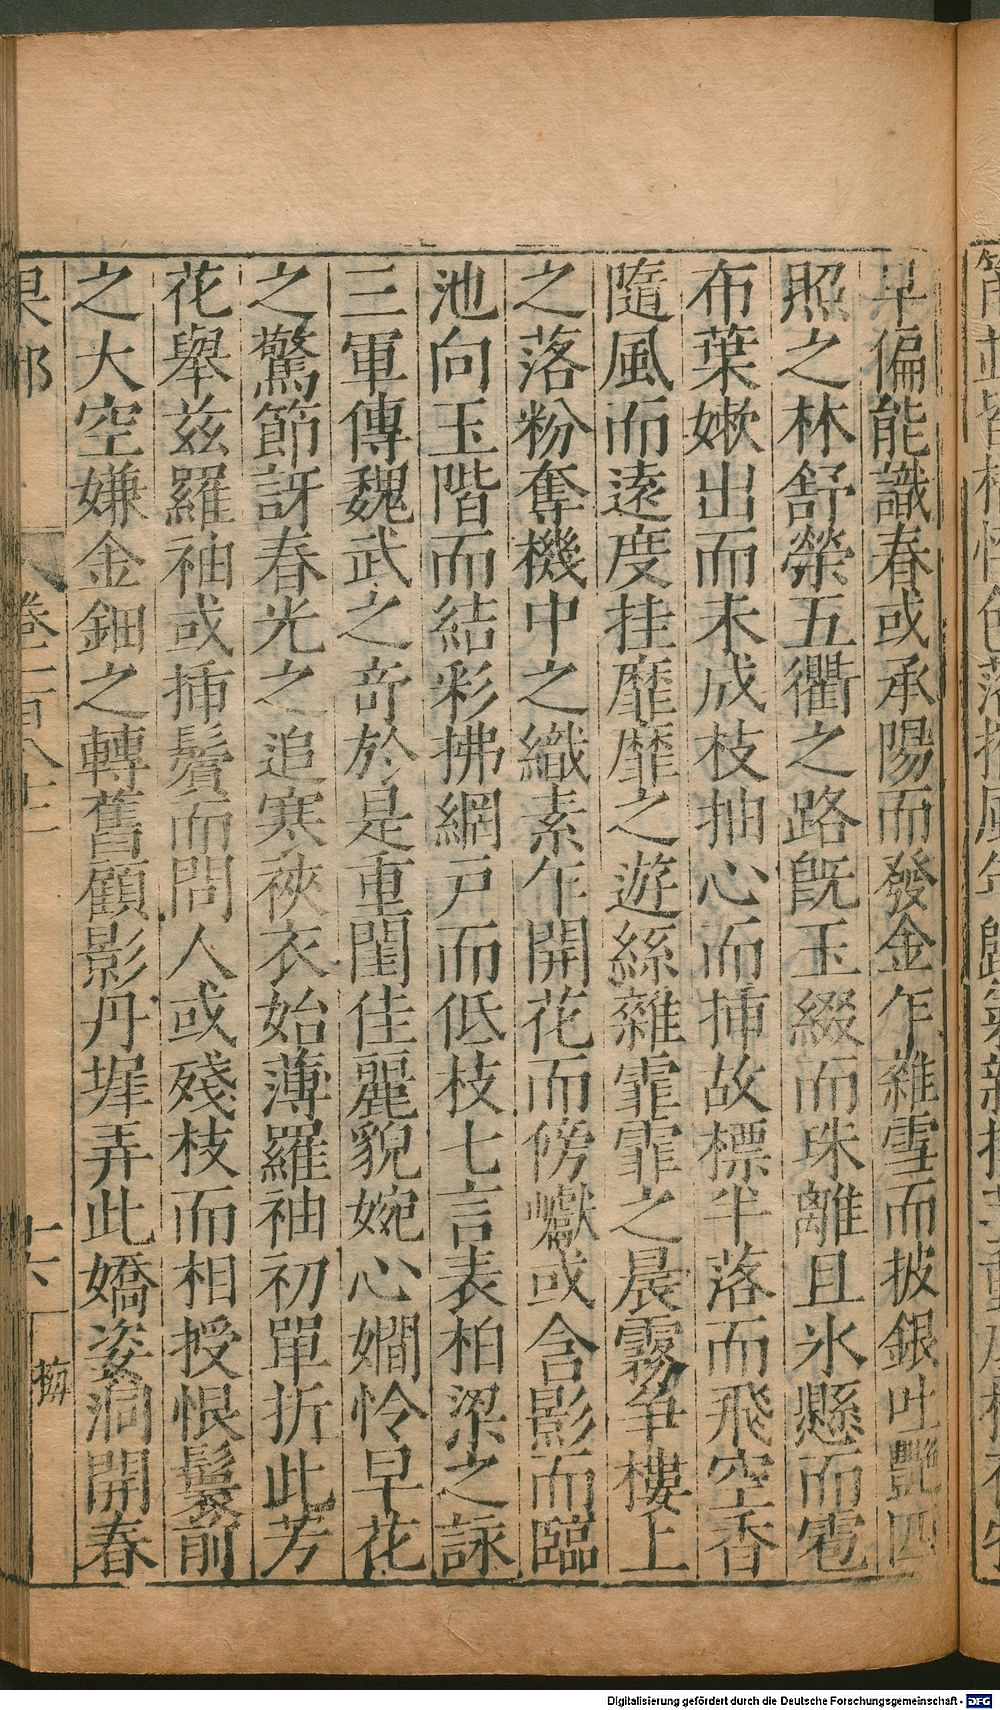 早偏能識春或承陽而發金乍雜雪而披銀吐艷四
照之林舒榮五衢之路旣玉綴而珠離且氷懸而雹
布葉嫰出而未成枝抽心而揷故標半落而飛空香
隨風而遠度挂靡靡之遊絲雜霏霏之晨霧争樓上
之落粉奪機中之織素乍開花而傍巘或含影而臨
池向玉階而結彩拂網戸而低枝七言表柏梁之詠
三軍傳魏武之竒於是重閨佳麗貌婉心嫺怜早花
之驚節訝春光之追寒裌衣始薄羅袖初單折此芳
花舉兹羅袖或揷鬢而問人或殘枝而相授恨鬟前
之大空嫌金鈿之轉舊顧影丹墀弄此嬌姿洞開春
果部 卷一百八十一 十六 梅
Digitalisierung gefördert durch die Deutsche Forschungsgemeinschaft - DFG